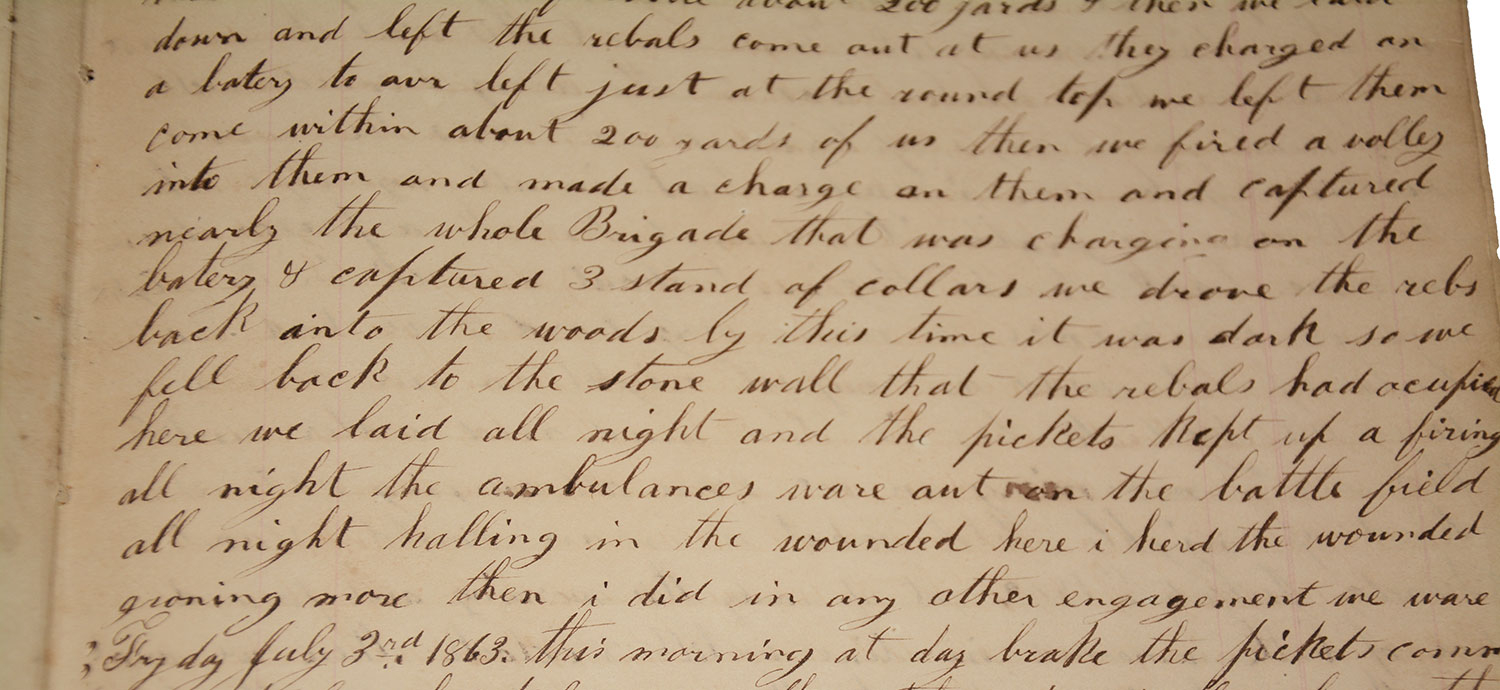 about 200 yards & then we
down and left the rebals come out at us they charged on
a batery to our left just at the round top we left them
come within about 200 yards of us then we fired a volley
into them and made a charge on them and captured
nearly the whole Brigade that was charging on the
batery & captured 3 stand of collars we drove the rebs
back into the woods by this time it was dark so we
fell back to the stone wall that the rebals had ocupied
here we laid all night and the pickets kept up a firing
all night the ambulances ware out on the battle field
all night halling in the wounded here i herd the wounded
groning more then i did in any other engagement we ware
Fryday July 3rd 1863. this morning at day brake the pickets comm